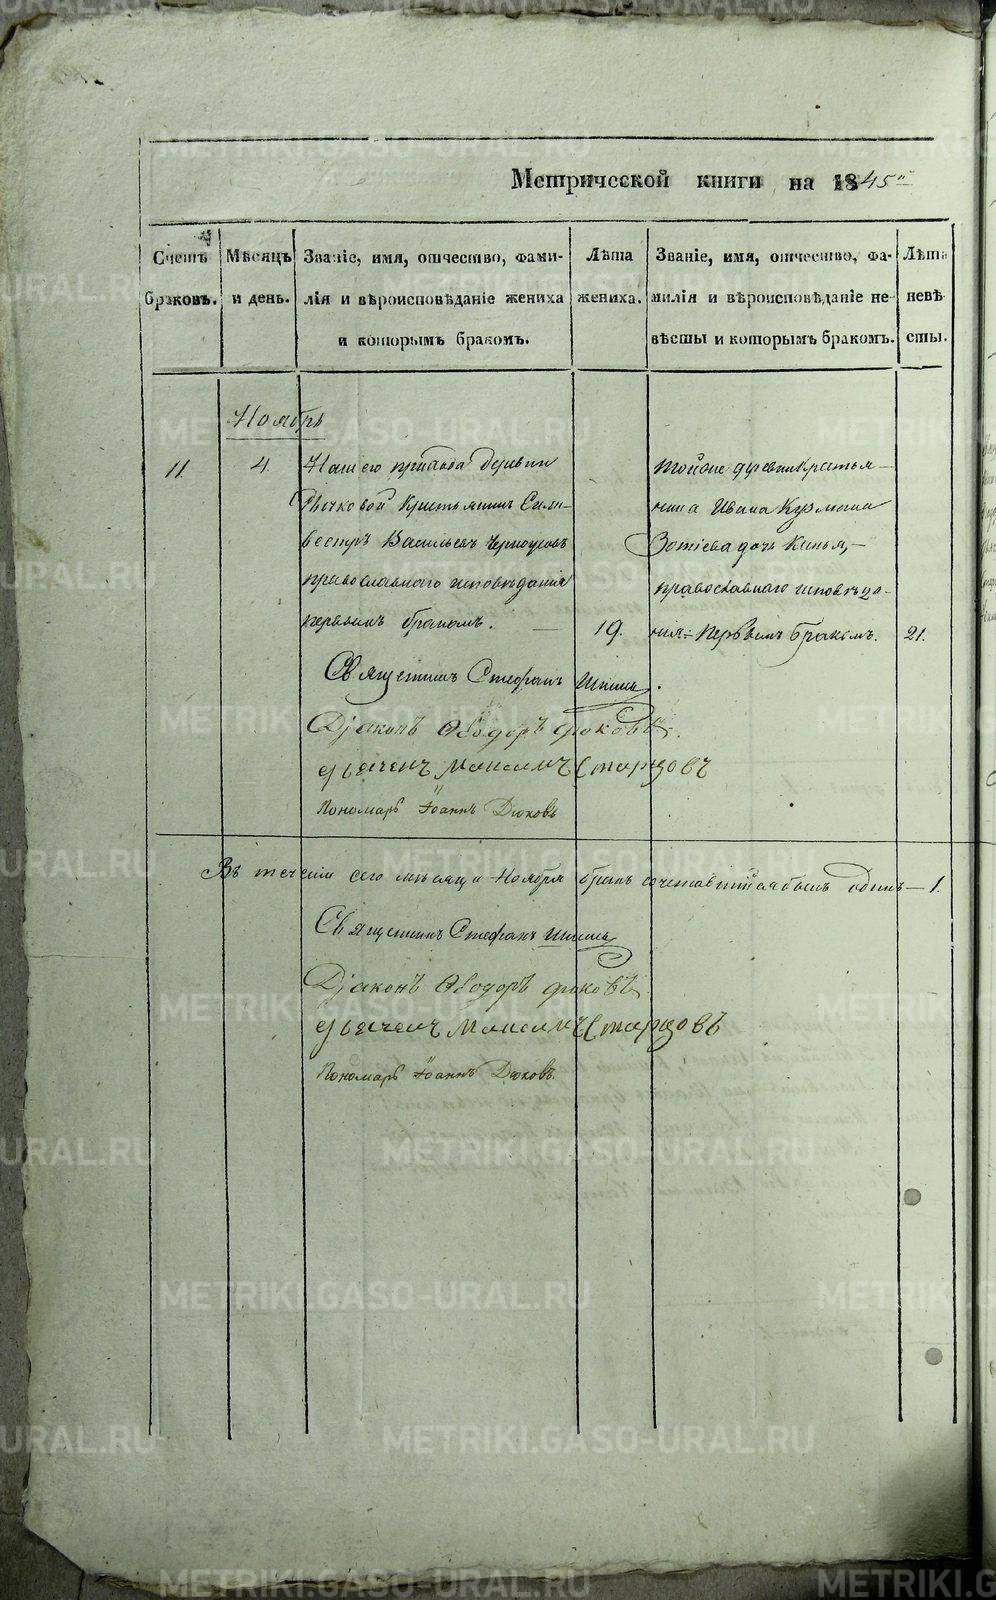 Метрической книги на 1845й
Счетъ браковъ.
Мѣсяцъ и день.
Званіе, имя, отчество, фами-
лія и вѣроисповѣданіе жениха
и которымъ бракомъ.
Лѣта
жениха.
Званіе, имя, отчество, фа-
милія и вѣроисповѣданіе не-
вѣсты и которымъ бракомъ.
Лѣта
невѣ
сты.
Ноябрь
11.
4.
Нашего прихода деревни
крестьянинъ Сили-
вестръ Васильевъ Черноусовъ
православнаго исповѣданія
первымъ бракомъ.
19.
тойже деревни крестья-
нина Ивана Кузмина
Зотіева дочь Ксенья,
православнаго исповѣда-
нія первымъ бракомъ.
21.
Священникъ Стефанъ
Діаконъ Ѳеодоръ Дюковъ.
Дьячекъ Максимъ Старцовъ
Пономарь Іоаннъ Дюковъ
Въ теченіи сего мѣсяца Ноября бракъ сочетавшійся былъ одинъ — 1.
Священникъ Стефанъ
Діаконъ Ѳеодоръ Дюковъ
Дьячекъ Максимъ Старцовъ
Пономарь Іоаннъ Дюковъ.
METRIKI.GASO-URAL.RU